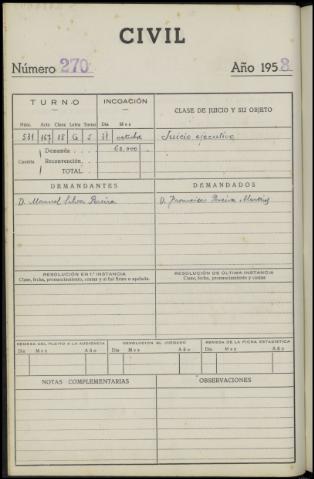 CIVIL
Número 270 Año 1958
TURNO INCOACIÓN CLASE DE JUICIO Y SU OBJETO
Núm. Acto Clase Letra Turno Día Mes
531 167 18 G 5 31 octubre Juicio ejecutivo
Cuantía Demanda . . . 60.000
Reconvención. . .
TOTAL . .
DEMANDANTES DEMANDADOS
D. Manuel Silva Pereira D. Francisco Pereira
RESOLUCIÓN EN 1.ª INSTANCIA RESOLUCIÓN DE ÚLTIMA INSTANCIA
Clase, fecha, pronunciamiento, costas y si fué firme o apelada. Clase, fecha, pronunciamiento y costas
REMESA DEL PLEITO A LA AUDIENCIA DEVOLUCIÓN AL JUZGADO REMESA DE LA FICHA ESTADÍSTICA
Día Mes Año Día Mes Año Día Mes Año
NOTAS COMPLEMENTARIAS OBSERVACIONES